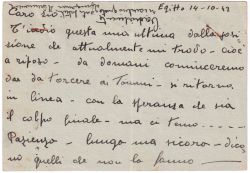 Egitto 14-10-42
Caro zio,
questa mia ultima dalla posi
sione che attualmente mi trovo - cioè
a riposo - da domani cominceremo
da torcere ai Tommi - si ritorna
in linea - con la speranza che sia
il colpo finale - ma ci temo
Pazienza - lungo ma sicuro - dico
no quelli che non la fanno